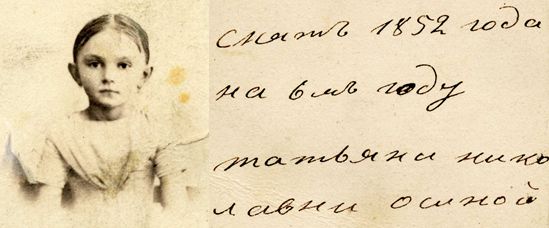 снятъ 1852 года
на 6мъ году
татьяни нико
лавни осиной